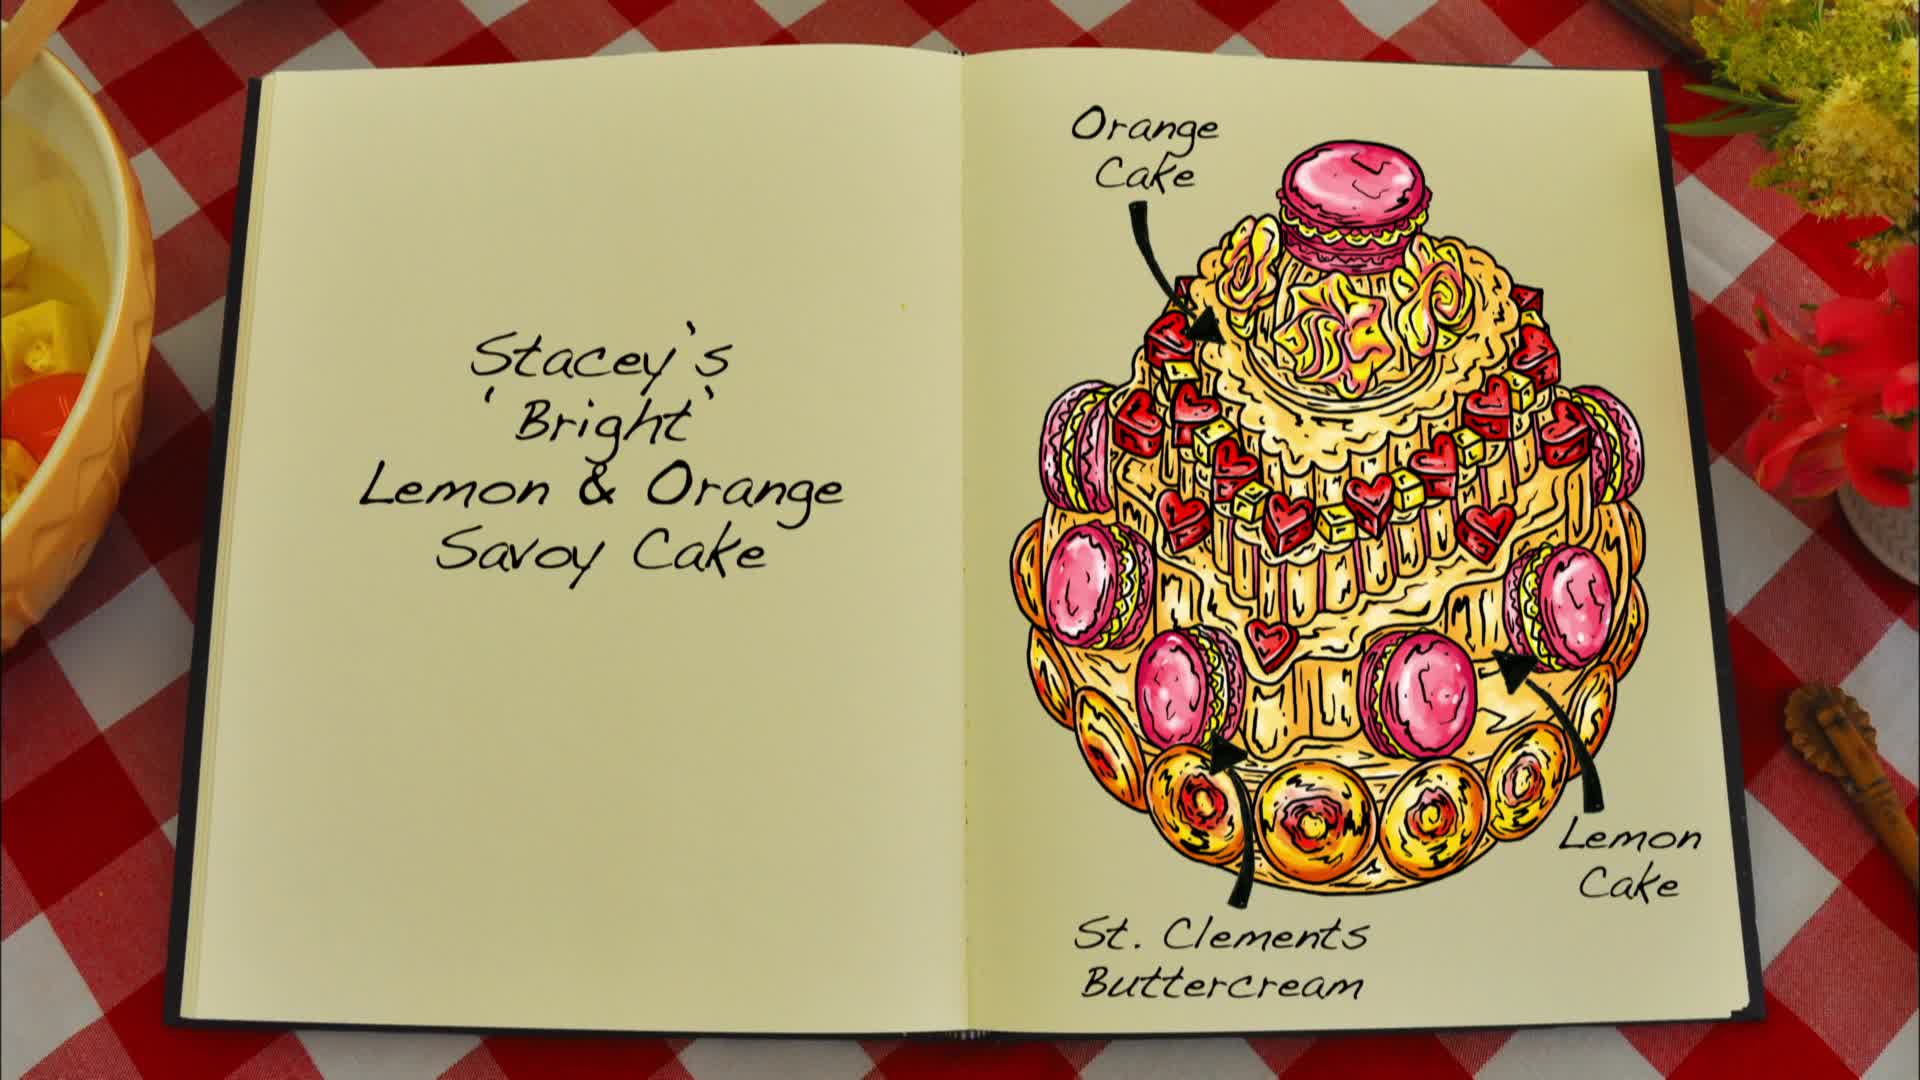 Stacey's
'Bright'
Lemon & Orange
Savoy Cake
Orange
Cake
Lemon
Cake
St. Clements
Buttercream